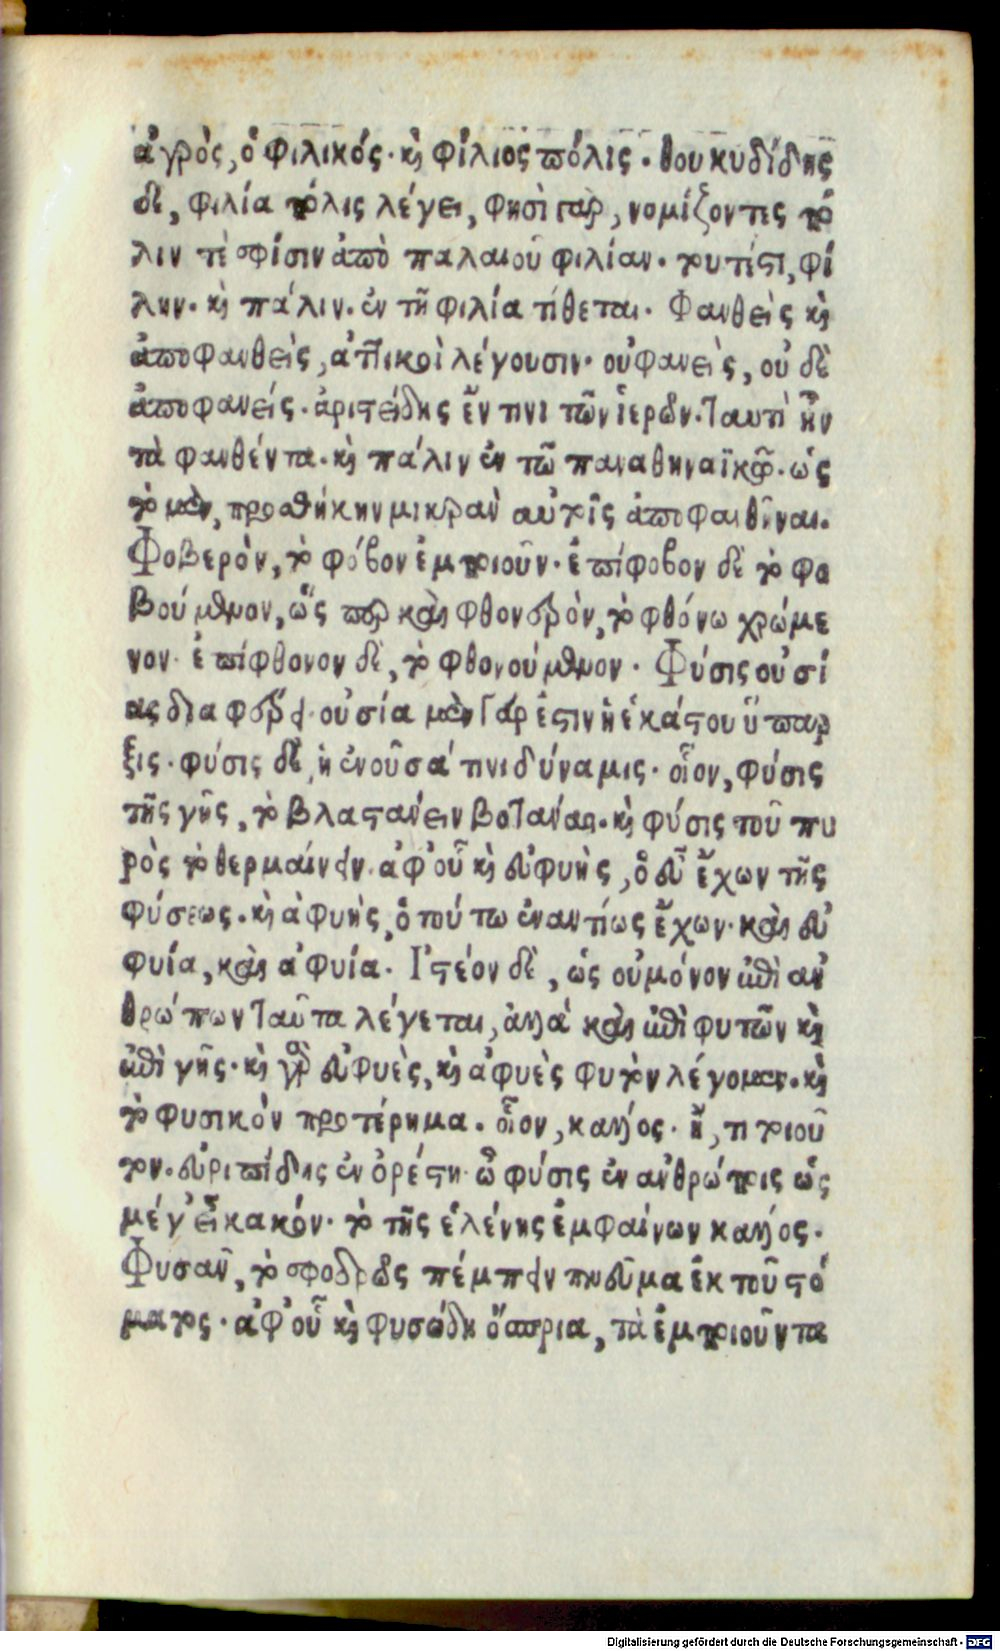 ἀγρὸς, ὁ φιλικός· κỳ φίλιος πόλις. θουκυδίδης
δὲ, φιλία πόλις λέγει, φησὶ γὰρ, νομίζοντες πό
λιν τὲ σφίσιν ἀπὸ παλαιοῦ φιλίαν. τουτέστι, φί
λην. καὶ πάλιν. ἐν τῇ φιλία τίθεται. Φανθεὶς καὶ
ἀποφανθείς, ἀττικοὶ λέγουσιν· οὐ φανεὶς, οὐ δὲ
ἀποφανείς. ἀριστείδης ἔν τινι τῶν ἱερῶν. ταυτὶ ἦν
τὰ φανθέντα. καὶ πάλιν ἐν τῶ παναθηναϊκῷ. ὡς
τὸ μὲν, προσθήκην μικρὰν αὐτοῖς ἀποφανθῆναι.
Φοβερὸν, τὸ φόβον ἐμποιοῦν· ἐπίφοβον δὲ τὸ φο
βούμενον, ὥς περ καὶ φθονερὸν, τὸ φθόνω χρώμε
νον· ἐπίφθονον δὲ, τὸ φθονούμενον. Φύσις οὐσί
ας διαφέρει· οὐσία μὲν γάρ ἐστιν ἡ ἑκάστου ὕπαρ
ξις. φύσις δὲ, ἡ ἐνοῦσά τινι δύναμις. οἷον, φύσις
τῆς γῆς, τὸ βλαστάνειν βοτάνας. καὶ φύσις τοῦ πυ
ρὸς τὸ θερμαίνειν. ἀφ' οὗ καὶ εὐφυὴς, ὁ εὖ ἔχων τῆς
φύσεως. καὶ ἀφυὴς, ὁ τούτω ἐναντίως ἔχων· καὶ εὐ
φυία, καὶ ἀφυία. Ἰστέον δὲ, ὡς οὐ μόνον ἐπὶ ἀν
θρώπων ταῦτα λέγεται, ἀλλὰ καὶ ἐπὶ φυτῶν καὶ
ἐπὶ γῆς. καὶ γὰρ εὐφυὲς, καὶ ἀφυὲς φυτὸν λέγομεν. καὶ
τὸ φυσικὸν προτέρημα. οἷον, κάλλος. ἤ, τι τοιοῦ
τον. εὐριπίδης ἐν ὀρέστη· ὦ φύσις ἐν ἀνθρώποις ὡς
μέγ' εἶ κακόν. τὸ τῆς ἑλένης ἐμφαίνων κάλλος.
Φυσᾶν, τὸ σφοδρῶς πέμπειν πνεῦμα ἐκ τοῦ στό
ματος. ἀφ' οὗ καὶ φυσώδη ὄσπρια, τὰ ἐμποιοῦντα
Digitalisierung gefördert durch die Deutsche Forschungsgemeinschaft - DFG